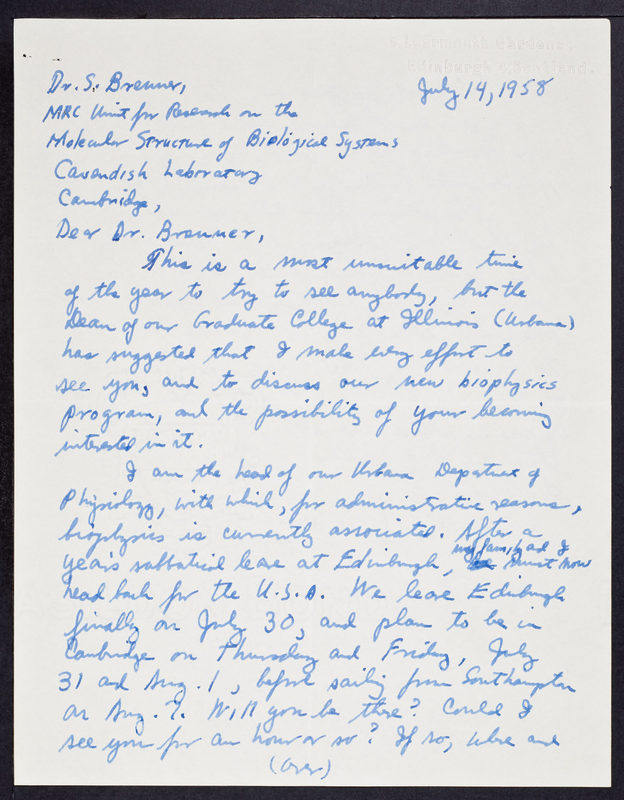 5 Learmonth Gardens,
Edinburgh 4, Scotland.
July 14, 1958
Dr. S. Brenner,
MRC Unit for Research on the
Molecular Structure of Biological Systems
Cavendish Laboratory
Cambridge,
Dear Dr. Brenner,
This is a most unsuitable time
of the year to try to see anybody, but the
Dean of our Graduate College at Illinois (Urbana)
has suggested that I make every effort to
see you, and to discuss our new biophysics
program, and the possibility of your becoming
interested in it.
I am the head of our Urbana Department of
Physiology, with which, for administrative reasons,
biophysics is currently associated. After a
year's sabbatical leave at Edinburgh, my family and I must now
head back for the U.S.A. We leave Edinburgh
finally on July 30, and plan to be in
Cambridge on Thursday and Friday, July
31 and Aug. 1, before sailing from Southampton
on Aug. 7. Will you be there? Could I
see you for an hour or so? If so, where and
(over)